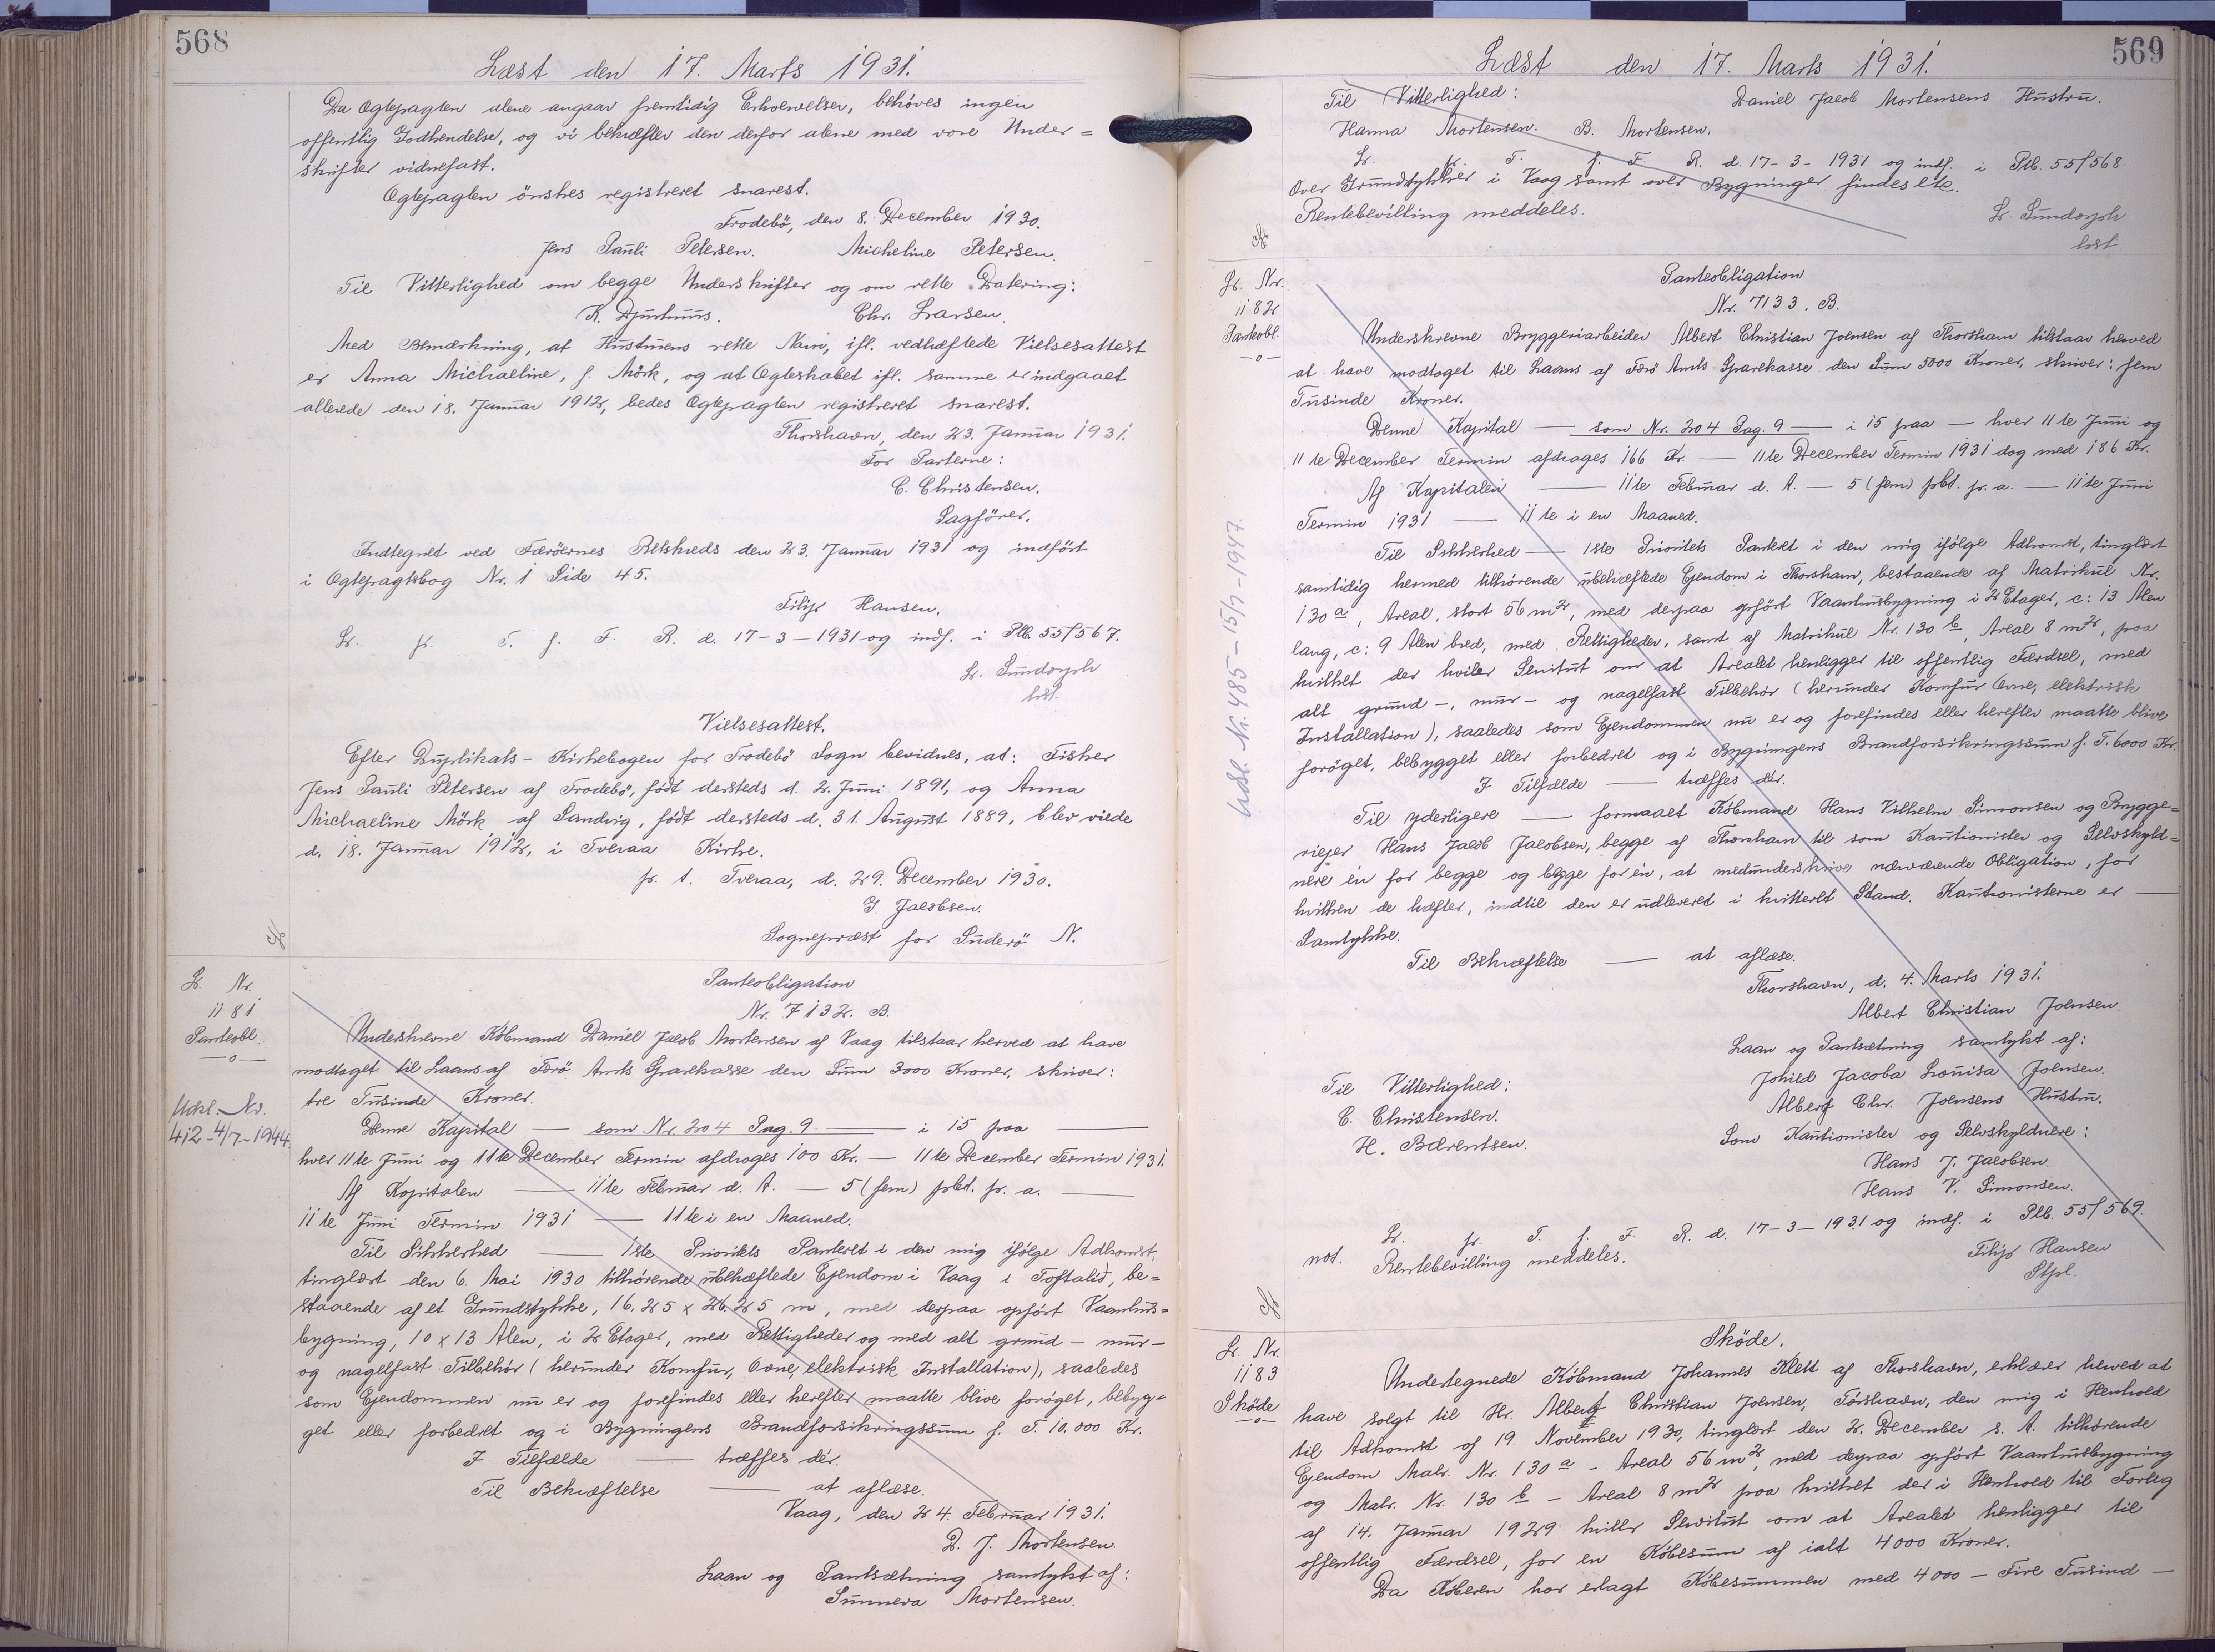 568
Læst den 17. Marts 1931.
Da Ægtepagten alene angaar fremtidig Erhvervelser, behöves ingen
offentlig Godkendelse, og vi bekræfter den derfor alene med vore Under=
skrifter vidnefast.
Ægtepagten önskes registreret snarest.
Frodebö, den 8. December 1930.
Jens Pauli Petersen. Micheline Petersen.
Til Vitterlighed om begge Underskrifter og om rette Datering:
K. Djurhuus. Chr. Larsen.
Med Bemærkning, at Hustruens rette Navn, ifl. vedhæftede Vielsesattest
er Anna Michaeline, f. Mörk, og at Ægteskabet ifl. samme er indgaaet
allerede den 18. Januar 1912, bedes Ægtepagten registreret snarest.
Thorshavn, den 23. Januar 1931.
For Parterne:
C. Christensen.
Sagförer.
Indtegnet ved Færöernes Retskreds den 23. Januar 1931 og indfört
i Ægtepagtsbog Nr. 1 Side 45.
Filip Hansen.
Lr. fr. T. f. F. R. d. 17-3-1931 og indf. i Plb. 55/567.
Lr. Sundorph
kst.
Vielsesattest.
Efter Duplikats-Kirkebogen for Frodebö Sogn bevidnes, at: Fisker
Jens Pauli Petersen af Frodebö, födt dersteds d. 2. Juni 1891, og Anna
Michaeline Mörk af Sandvig, födt dersteds d. 31. August 1889, blev viede
d. 18. Januar 1912, i Tveraa Kirke.
p. t. Tveraa, d. 29. December 1930.
G. Jacobsen.
Sognepræst for Suderö N.
Lr. Nr.
1181
Panteobl.
Udsl. Nr.
412-4/7-1944
Panteobligation
Nr. 7132. B.
Underskrevne Købmand Daniel Jacob Mortensen af Vaag tilstaar herved at have
modtaget til Laans af Færö Amts Sparekasse den Sum 3000 Kroner, skriver:
tre Tusinde Kroner.
Denne Kapital — som Nr. 204 Pag. 9 — i 15 paa —
hver 11te Juni og 11te December Termin afdrages 100 Kr. — 11te December Termin 1931.
Af Kapitalen — 11te Februar d. A. — 5 (fem) pCt. p. a. —
11te Juni Termin 1931 — 11te i en Maaned.
Til Sikkerhed — 1ste Prioritets Panteret i den mig ifölge Adkomst,
tinglæst den 6. Mai 1930 tilhörende ubehæftede Ejendom i Vaag i Toftalid, be=
staaende af et Grundstykke, 16.25 x 26.25 m, med derpaa opfört Vaanhus=
bygning, 10 x 13 Alen, i 2 Etager, med Rettigheder og med alt grund- mur-
og nagelfast Tilbehör (herunder Komfur, Ovne, elektrisk Installation), saaledes
som Ejendommen nu er og forefindes eller herefter maatte blive foröget, bebyg=
get eller forbedret og i Bygningens Brandforsikringssum f. T. 10.000 Kr.
I Tilfælde — træffes dér.
Til Bekræftelse — at aflæse.
Vaag, den 24. Februar 1931.
D. J. Mortensen.
Laan og Pantsætning samtykt af:
Sunneva Mortensen.
569
Læst den 17. Marts 1931.
Til Vitterlighed: Daniel Jacob Mortensens Hustru.
Hanna Mortensen. B. Mortensen.
Lr. fr. T. f. F. R. d. 17-3-1931 og indf. i Plb. 55/568
Over Grundstykker i Vaag samt over Bygninger findes etc.
Rentebevilling meddeles.
Lr. Sundorph
kst
Lr. Nr.
1182
Panteobl.
Udsl. Nr. 485-15/7-1947.
Panteobligation
Nr. 7133. B.
Underskrevne Bryggeriarbeider Albert Christian Joensen af Thorshavn tilstaar herved
at have modtaget til Laans af Færö Amts Sparekasse den Sum 5000 Kroner, skriver: fem
Tusinde Kroner.
Denne Kapital — som Nr. 204 Pag. 9 — i 15 paa — hver 11te Juni og
11te December Termin afdrages 166 Kr. — 11te December Termin 1931 dog med 186 Kr.
Af Kapitalen — 11te Februar d. A. — 5 (fem) pCt. p. a. — 11te Juni
Termin 1931 — 11te i en Maaned.
Til Sikkerhed — 1ste Prioritets Panteret i den mig ifölge Adkomst, tinglæst
samtidig hermed tilhörende ubehæftede Ejendom i Thorshavn, bestaaende af Matrikul Nr.
130 a, Areal, stort 56 m2, med derpaa opfört Vaanhusbygning i 2 Etager, c: 13 Alen
lang, c: 9 Alen bred, med Rettigheder, samt af Matrikul Nr. 130 b, Areal 8 m2, paa
hvilket der hviler Servitut om at Arealet henligger til offentlig Færdsel, med
alt grund-, mur- og nagelfast Tilbehör (herunder Komfur Ovne, elektrisk
Installation), saaledes som Ejendommen nu er og forefindes eller herefter maatte blive
foröget, bebygget eller forbedret og i Bygningens Brandforsikringssum f. T. 6000 Kr.
I Tilfælde — træffes dér.
Til yderligere — formaaet Købmand Hans Vilhelm Simonsen og Brygge=
riejer Hans Jacob Jacobsen, begge af Thorshavn til som Kautionister og Selvskyld=
nere én for begge og begge for én, at medunderskrive nærværende Obligation, for
hvilken de hæfter, indtil den er udleveret i kvitteret Stand. Kautionisterne er —
Samtykke.
Til Bekræftelse — at aflæse.
Thorshavn, d. 4. Marts 1931.
Albert Christian Joensen.
Laan og Pantsætning samtykt af:
Til Vitterlighed: Johild Jacoba Lovisa Joensen.
C. Christensen. Albert Chr. Joensens Hustru.
H. Bærentsen. Som Kautionister og Selvskyldnere:
Hans J. Jacobsen.
Hans V. Simonsen.
Lr. fr. T. f. F. R. d. 17-3-1931 og indf. i Plb. 55/569.
not. Rentebevilling meddeles.
Filip Hansen
Stpl.
Lr. Nr.
1183
Sköde
Sköde.
Undertegnede Købmand Johannes Klett af Thorshavn, erklærer herved at
have solgt til Hr. Albert Christian Joensen, Tórshavn, den mig i Henhold
til Adkomst af 19. November 1930, tinglæst den 2. December s. A. tilhörende
Ejendom Matr. Nr. 130 a - Areal 56 m2, med derpaa opfört Vaanhusbygning
og Matr. Nr. 130 b - Areal 8 m2 paa hvilket der i Henhold til Forlig
af 14. Januar 1929 hviler Servitut om at Arealet henligger til
offentlig Færdsel, for en Købesum af ialt 4000 Kroner.
Da Køberen har erlagt Købesummen med 4000 - Fire Tusind -